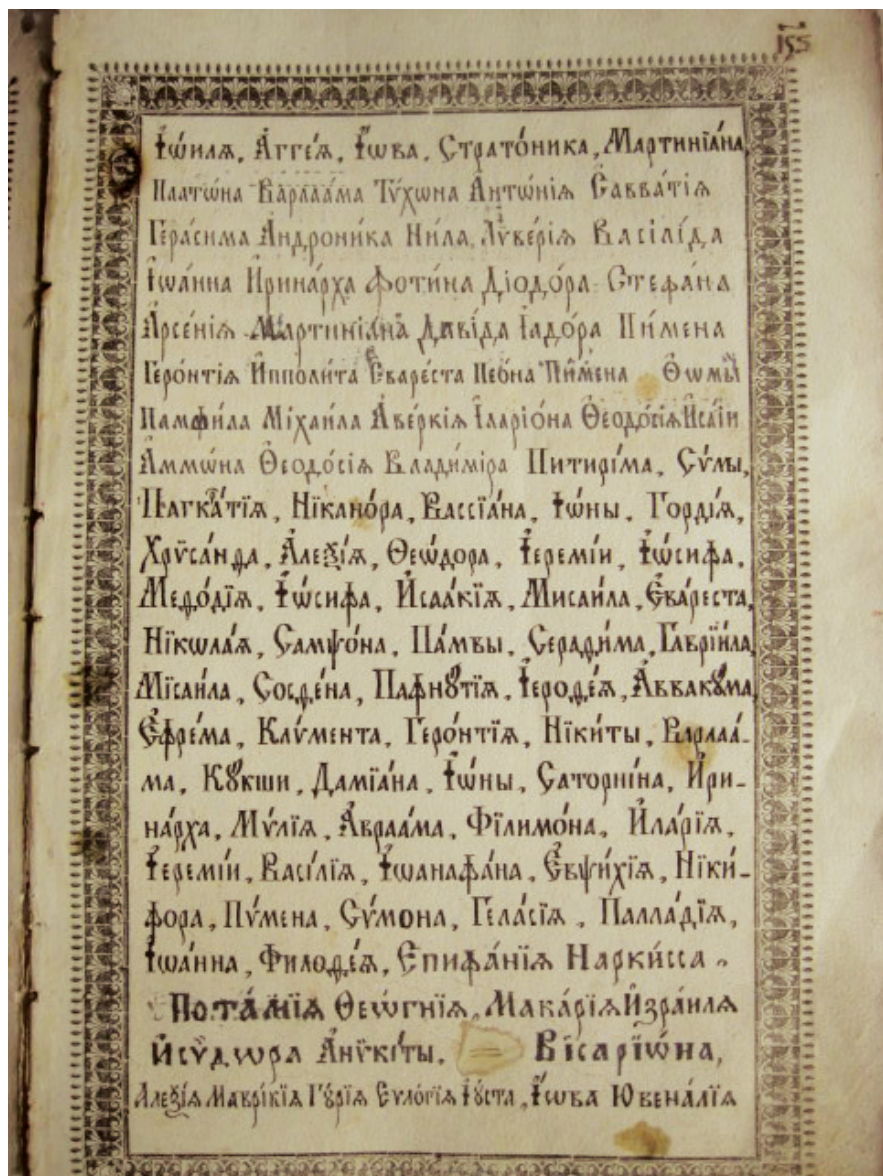 рѕ҃
Іѡ́илѧ, Агге́ѧ, І́ѡва, Страто́ника, Мартинїа́на,
Плато́на Варлаа́ма Тѵ́хѡна Анто́нїѧ Савва́тїѧ
Гера́сима Андрони́ка Ни́ла, Лѵве́рїѧ Васілі́да
Іѡа́нна Ирина́рха Фоти́на Дїодо́ра Стефа́на
Арсе́нїѧ Мартинїа́на Дави́да Іадо́ра Пи́мена
Геро́нтїѧ Ипполи́та Еваре́ста Пи́мена Ѳѡмы̀
Памфи́ла Міхаи́ла Аве́ркїѧ Іларїо́на Ѳеодо́сїѧ Иса́їи
Аммѡ́на Ѳеодо́сїѧ Влади́міра Питири́ма, Сѵ́лы,
Пагкра́тїѧ, Нїкано́ра, Вассїа́на, Іѡ́ны, Горді́ѧ,
Хрѵса́нѳа, Алеѯі́ѧ, Ѳеѡ́дора, Іеремі́и, Іѡ́сифа,
Меѳо́дїѧ, Іѡ́сифа, Исаа́кїѧ, Мисаи́ла, Єва́реста,
Нїкола́ѧ, Самѱо́на, Па́мвы, Серафи́ма, Гаврїи́ла,
Мїсаи́ла, Сосѳе́на, Пафнꙋ́тїѧ, Іероѳе́ѧ, Аввакꙋ́ма,
Єфре́ма, Клѵ́мента, Геро́нтїѧ, Нїки́ты, Варлаа́-
ма, Кꙋ́кши, Дамїа́на, Іѡ́ны, Саторни́на, Ири-
на́рха, Мѵ́лїѧ, Авраа́ма, Фїлимо́на, Ила́рїѧ,
Іеремі́и, Васі́лїѧ, Іѡанафа́на, Євѱи́хїѧ, Нїки́-
фора, Пѵ́мена, Сѵ́мона, Гела́сїѧ, Палла́дїѧ,
Іѡа́нна, Филоѳе́ѧ, Єпифа́нїѧ Нарки́сса
Пота́мїѧ Ѳеѡгнїѧ, Мака́рїѧ Изра́илѧ
Исѵ́дѡра Анѵки́ты. Вїсарїѡ́на,
Алеѯі́ѧ Маврі́кїѧ Гꙋ́рїѧ Єѵло́гїѧ Іꙋ́ста, І́ѡва Ювена́лїѧ